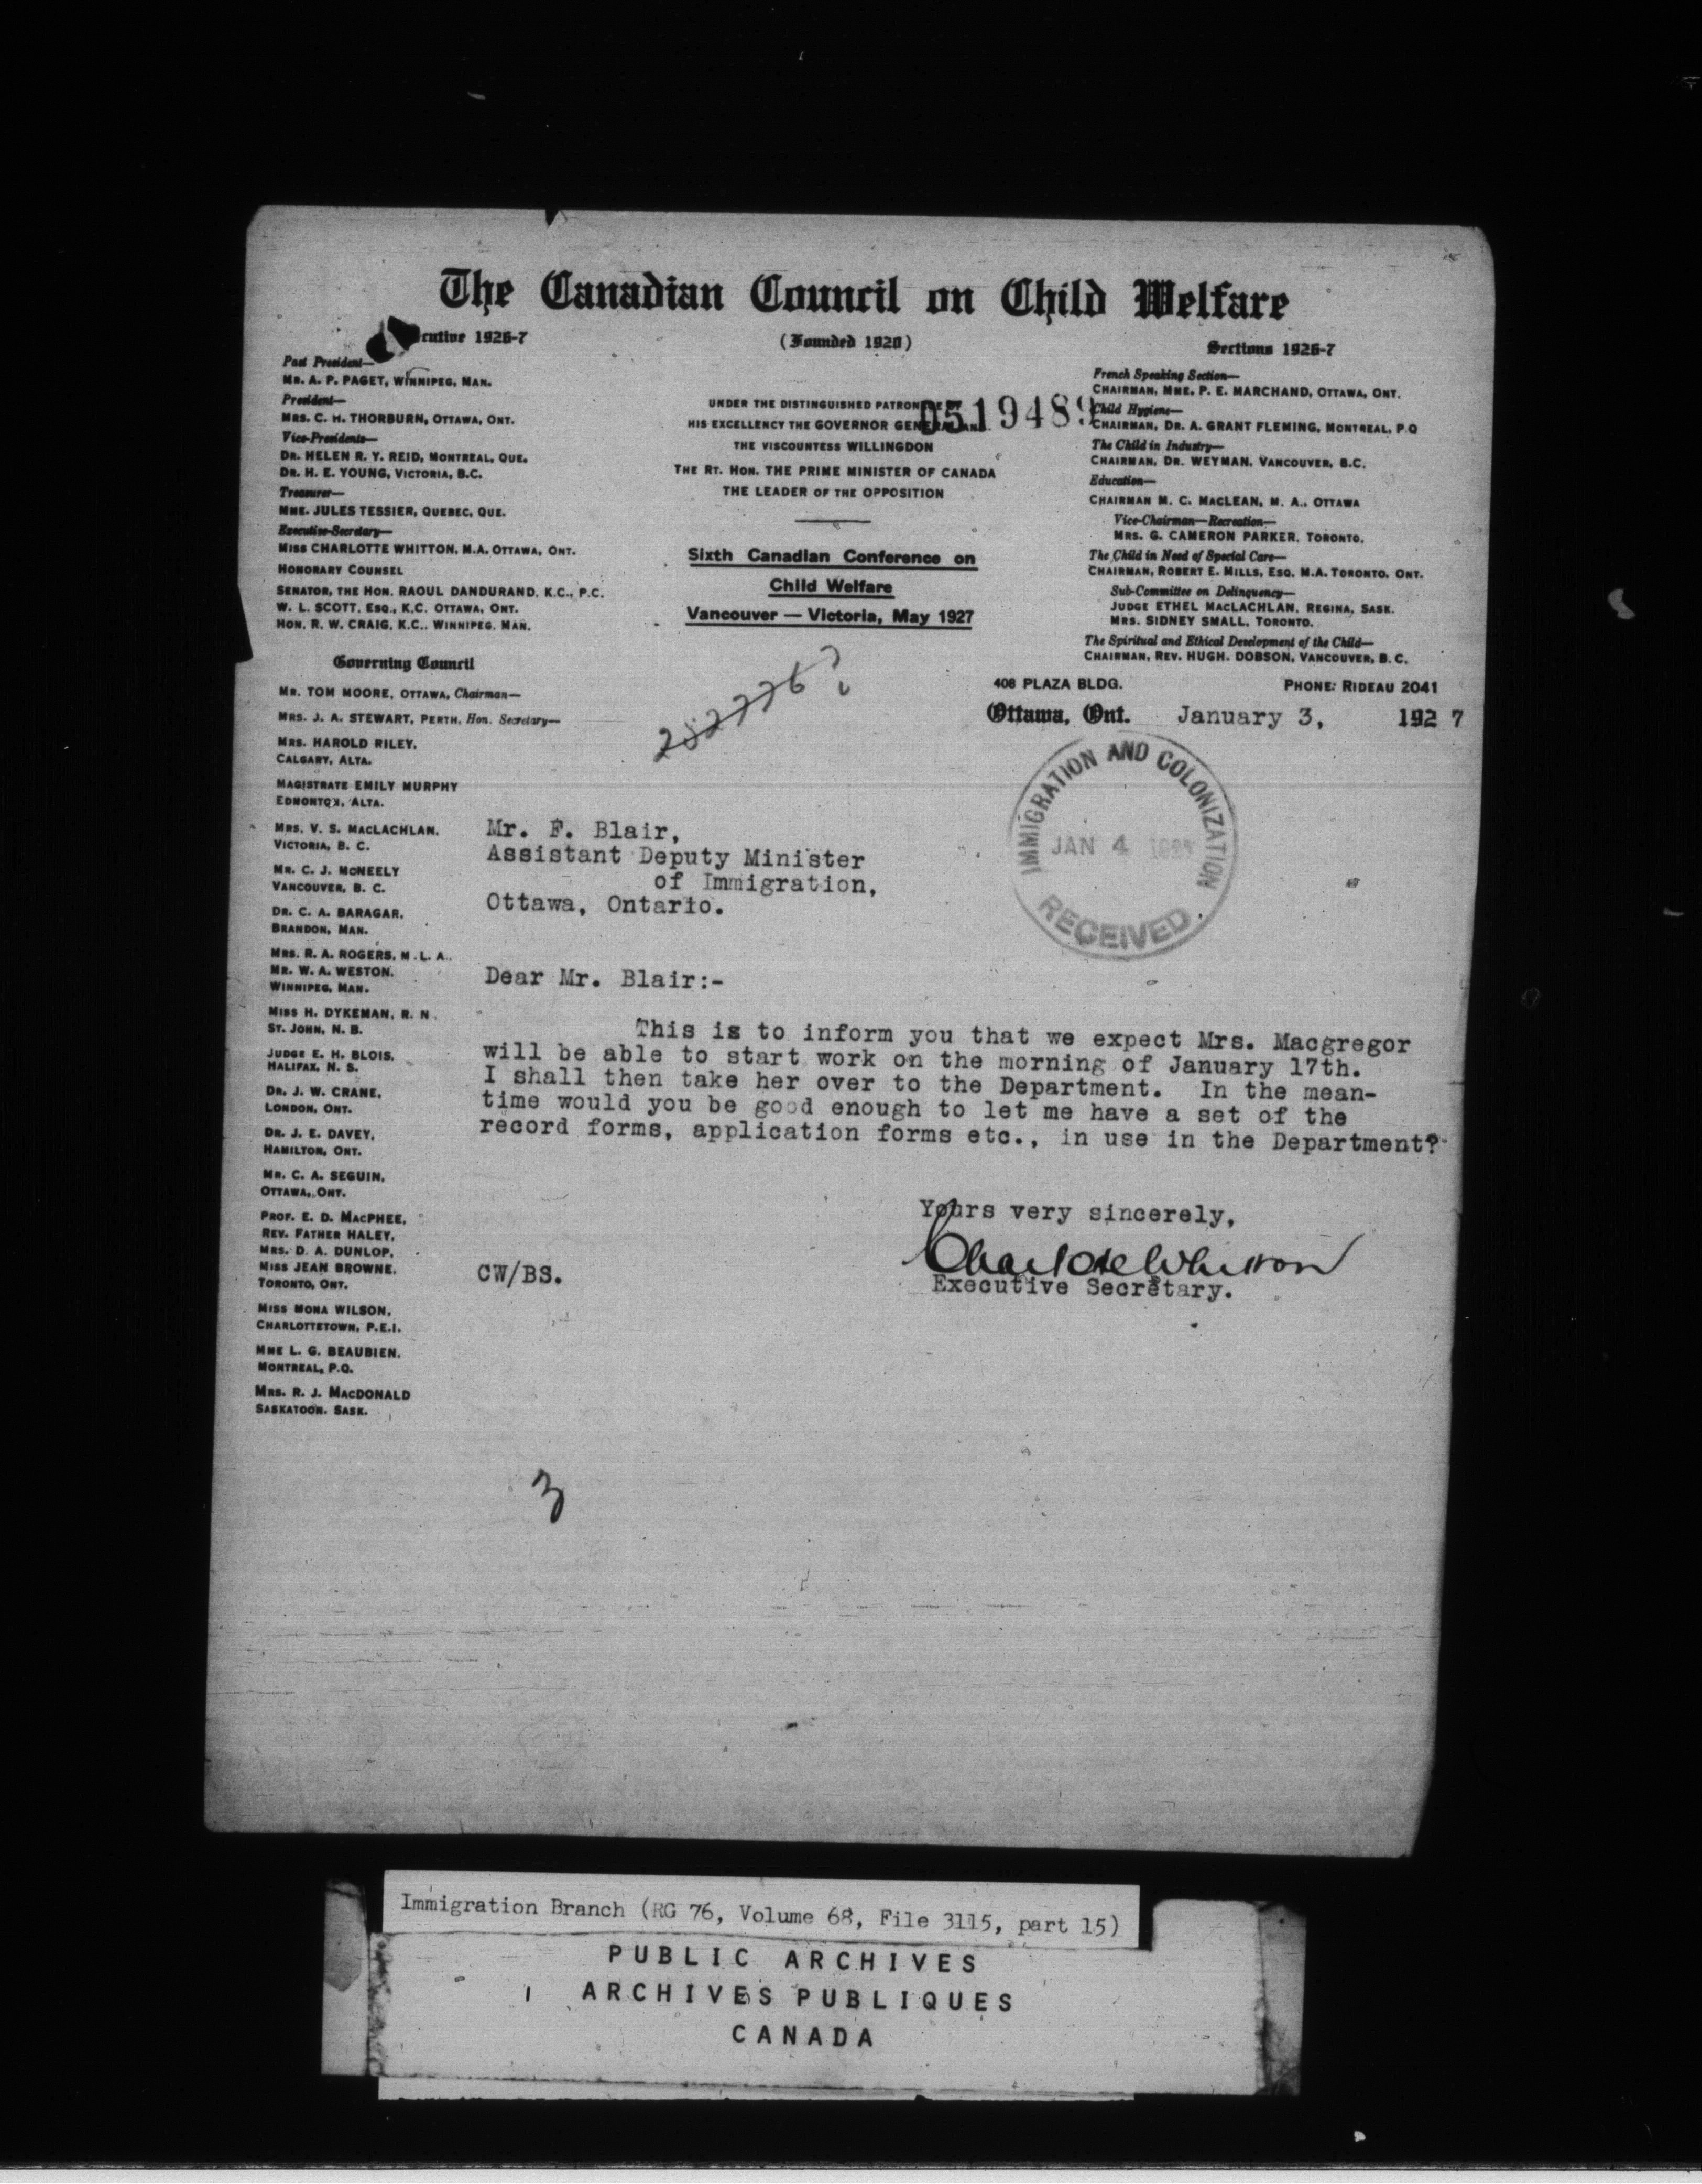 The Canadian Council on Child Welfare
cutive 1926-7
Past President—
MR. A. P. PAGET, WINNIPEG, MAN.
President—
MRS. C. H. THORBURN, OTTAWA, ONT.
Vice-Presidents—
DR. HELEN R. Y. REID, MONTREAL, QUE.
DR. H. E. YOUNG, VICTORIA, B.C.
Treasurer—
MME. JULES TESSIER, QUEBEC, QUE.
Executive-Secretary—
MISS CHARLOTTE WHITTON, M.A. OTTAWA, ONT.
HONORARY COUNSEL
SENATOR, THE HON. RAOUL DANDURAND, K.C., P.C.
W. L. SCOTT, ESQ., K.C. OTTAWA, ONT.
HON. R. W. CRAIG, K.C., WINNIPEG, MAN.
Governing Council
MR. TOM MOORE, OTTAWA, Chairman—
MRS. J. A. STEWART, PERTH, Hon. Secretary—
MRS. HAROLD RILEY,
CALGARY, ALTA.
MAGISTRATE EMILY MURPHY
EDMONTON, ALTA.
MRS. V. S. MACLACHLAN,
VICTORIA, B. C.
MR. C. J. MCNEELY
VANCOUVER, B. C.
DR. C. A. BARAGAR,
BRANDON, MAN.
MRS. R. A. ROGERS, M.L.A.,
MR. W. A. WESTON,
WINNIPEG, MAN.
MISS H. DYKEMAN, R. N.
ST. JOHN, N. B.
JUDGE E. H. BLOIS,
HALIFAX, N. S.
DR. J. W. CRANE,
LONDON, ONT.
DR. J. E. DAVEY,
HAMILTON, ONT.
MR. C. A. SEGUIN,
OTTAWA, ONT.
PROF. E. D. MACPHEE,
REV. FATHER HALEY,
MRS. D. A. DUNLOP,
MISS JEAN BROWNE,
TORONTO, ONT.
MISS MONA WILSON,
CHARLOTTETOWN, P.E.I.
MME L. G. BEAUBIEN,
MONTREAL, P.Q.
MRS. R. J. MACDONALD
SASKATOON, SASK.
(Founded 1920)
UNDER THE DISTINGUISHED PATRONAGE OF
HIS EXCELLENCY THE GOVERNOR GENERAL AND
THE VISCOUNTESS WILLINGDON
THE RT. HON. THE PRIME MINISTER OF CANADA
THE LEADER OF THE OPPOSITION
0519489
Sixth Canadian Conference on
Child Welfare
Vancouver — Victoria, May 1927
Sections 1926-7
French Speaking Section—
CHAIRMAN, MME. P. E. MARCHAND, OTTAWA, ONT.
Child Hygiene—
CHAIRMAN, DR. A. GRANT FLEMING, MONTREAL, P.Q
The Child in Industry—
CHAIRMAN, DR. WEYMAN, VANCOUVER, B.C.
Education—
CHAIRMAN M. C. MACLEAN, M. A., OTTAWA
Vice-Chairman—Recreation—
MRS. G. CAMERON PARKER, TORONTO.
The Child in Need of Special Care—
CHAIRMAN, ROBERT E. MILLS, ESQ. M.A. TORONTO, ONT.
Sub-Committee on Delinquency—
JUDGE ETHEL MACLACHLAN, REGINA, SASK.
MRS. SIDNEY SMALL, TORONTO.
The Spiritual and Ethical Development of the Child—
CHAIRMAN, REV. HUGH. DOBSON, VANCOUVER, B. C.
408 PLAZA BLDG. PHONE: RIDEAU 2041
Ottawa, Ont. January 3, 1927
IMMIGRATION AND COLONIZATION
JAN 4
RECEIVED
Mr. F. Blair,
Assistant Deputy Minister
of Immigration,
Ottawa, Ontario.
Dear Mr. Blair:-
This is to inform you that we expect Mrs. Macgregor
will be able to start work on the morning of January 17th.
I shall then take her over to the Department. In the mean-
time would you be good enough to let me have a set of the
record forms, application forms etc., in use in the Department?
Yours very sincerely,
Charlotte Whitton
Executive Secretary.
CW/BS.
3
Immigration Branch (RG 76, Volume 68, File 3115, part 15)
PUBLIC ARCHIVES
ARCHIVES PUBLIQUES
CANADA